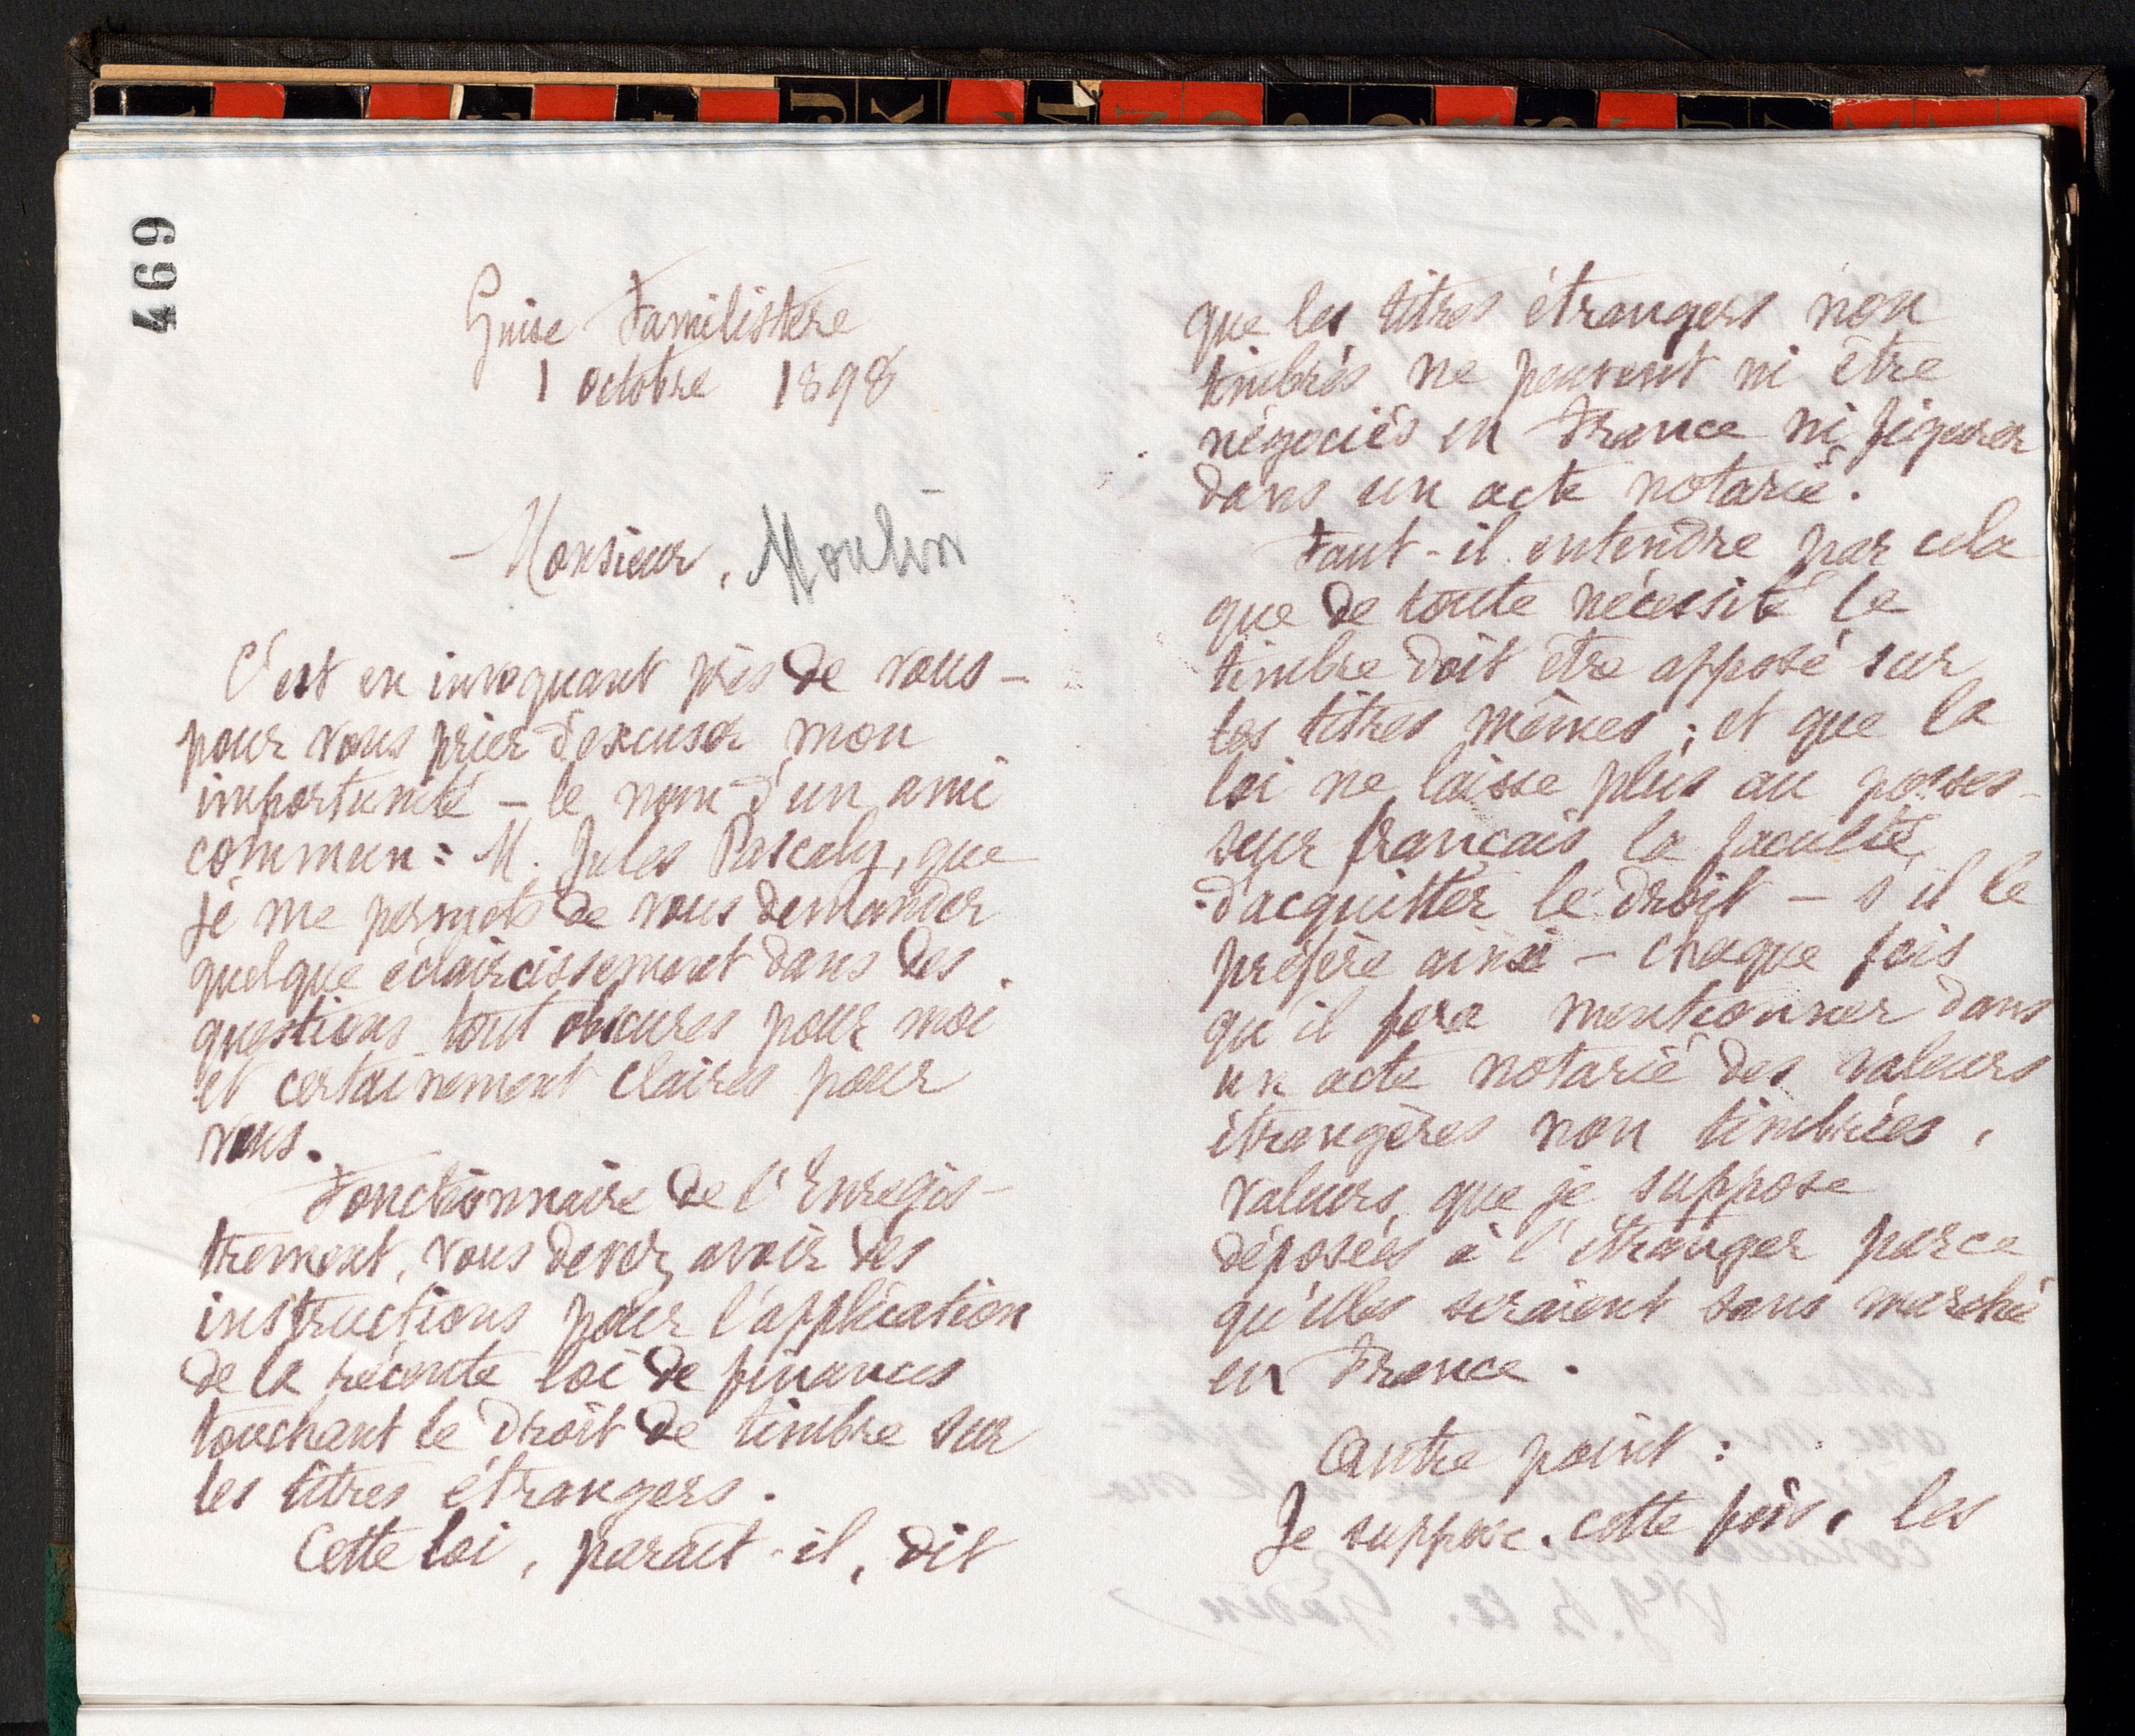 469
Guise Familistère
1 octobre 1898
Monsieur, Moulin
C'est en invoquant près de vous —
pour vous prier d'excuser mon
importunité — le nom d'un ami
commun : M. Jules Pascaly, que
je me permets de vous demander
quelque éclaircissement dans des
questions tout obscures pour moi
et certainement claires pour
vous.
Fonctionnaire de l'Enregis-
trement, vous devez avoir des
instructions pour l'application
de la récente loi de finances
touchant le droit de timbre sur
les titres étrangers.
Cette loi, paraît-il, dit
que les titres étrangers non
timbrés ne peuvent ni être
négociés en France ni figurer
dans un acte notarié.
Faut-il entendre par cela
que de toute nécessité le
timbre doit être apposé sur
les titres mêmes ; et que la
loi ne laisse plus au posses-
seur français la faculté
d'acquitter le droit — s'il le
préfère ainsi — chaque fois
qu'il fera mentionner dans
un acte notarié des valeurs
étrangères non timbrées,
valeurs que je suppose
déposées à l'étranger parce
qu'elles seraient sans marché
en France.
Autre point :
Je suppose, cette fois, les
J
K
L
M
N
O
P
Q
R
S
T
U
V